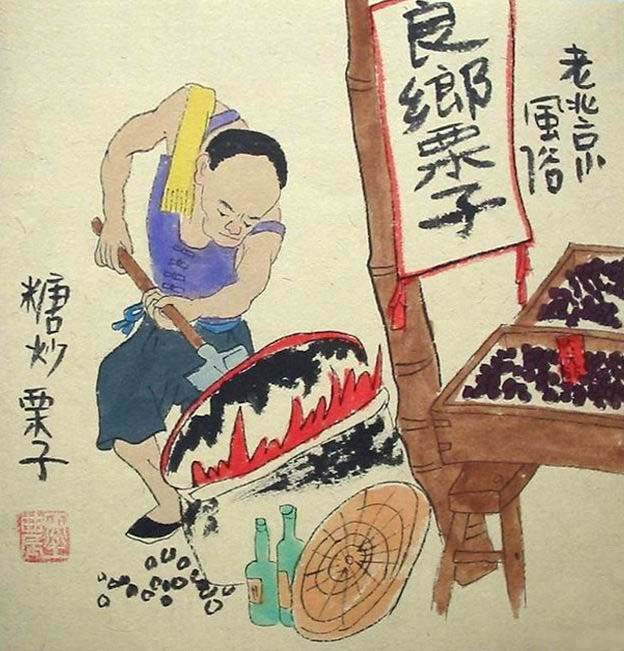 老北京
風俗
良鄉栗子
糖炒栗子